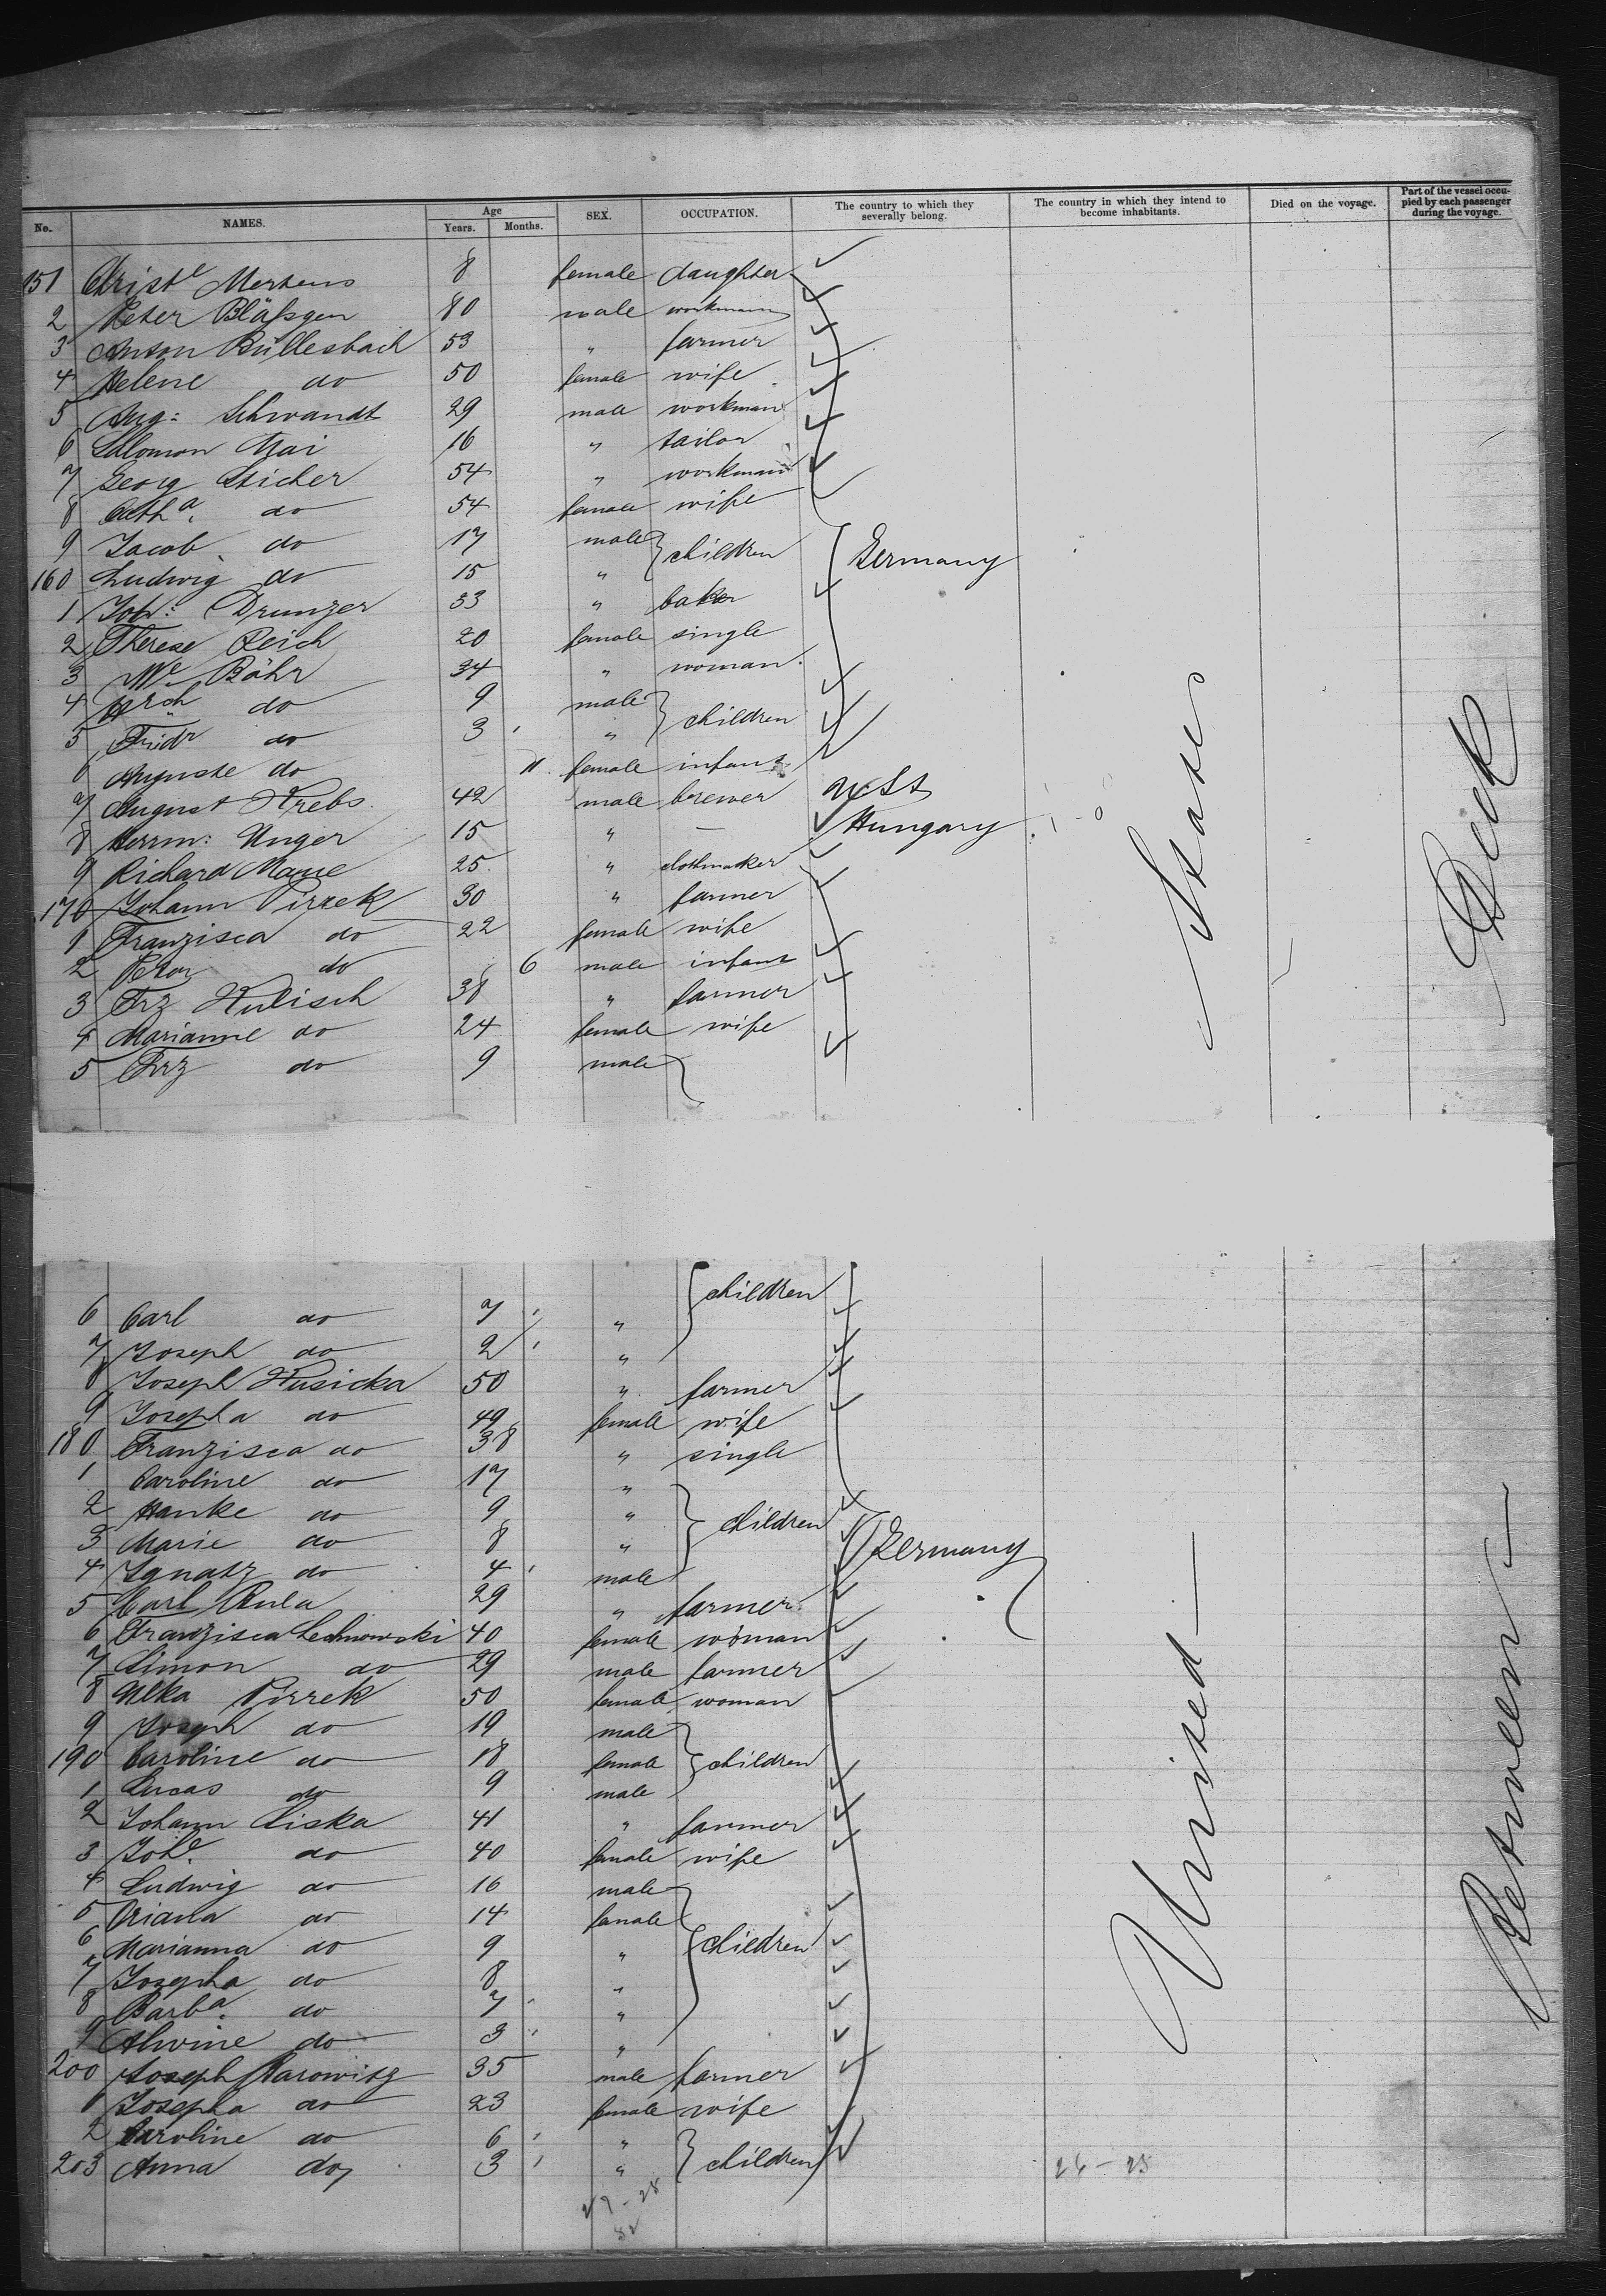 No. NAMES. Age Years. Months. SEX. OCCUPATION. The country to which they severally belong. The country in which they intend to become inhabitants. Died on the voyage. Part of the vessel occupied by each passenger during the voyage.
151 Christe Mertens 8 female daughter
2 Peter Bläßgen 80 male workman
3 Anton Büllesbach 53 " farmer
4 Helene do 50 female wife
5 Aug: Schwandt 29 male workman
6 Salomon Mai 16 " tailor
7 Georg Sticher 54 " workman
8 Catha. do 54 female wife
9 Jacob do 17 male children Germany
160 Ludwig do 15 "
1 Joh: Drunzer 53 " baker
2 Therese Reich 20 female single
3 We Bähr 34 " woman
4 do 9 male children
5 Friedr do 3 "
6 Auguste do 11 female infant
7 August Krebs 42 male brewer
8 Herrm: Unger 15 " — Hungary
9 Richard 25 " clothmaker
170 Johann Pirrek 30 " farmer
1 Franzisca do 22 female wife
2 do 6 male infant
3 Frz Kulisch 38 " farmer
4 Marianne do 24 female wife
5 Frz do 9 male
States
Deck
6 Carl do 7 " children
7 Joseph do 2 "
8 Joseph Husicka 50 " farmer
9 Josepha do 49 female wife
180 Franzisca do 38 " single
1 Caroline do 17 "
2 Hanke do 9 " children
3 Marie do 8 " Germany
4 Ignatz do 4 male
5 Carl Rula 29 " farmer
6 Franzisca Lechnowski 40 female woman
7 Simon do 29 male farmer
8 Pirrek 50 female woman
9 Joseph do 19 male
190 Caroline do 18 female children
1 Lucas do 9 male
2 Johann Liska 41 " farmer
3 Johe. do 40 female wife
4 Ludwig do 16 male
5 do 14 female
6 Marianna do 9 " children
7 Josepha do 8 "
8 Barba. do 7 "
9 Alwine do 3 "
200 Joseph Barowitz 35 male farmer
1 Josepha do 23 female wife
2 Caroline do 6 "
203 Anna do 3 " children
United
Between